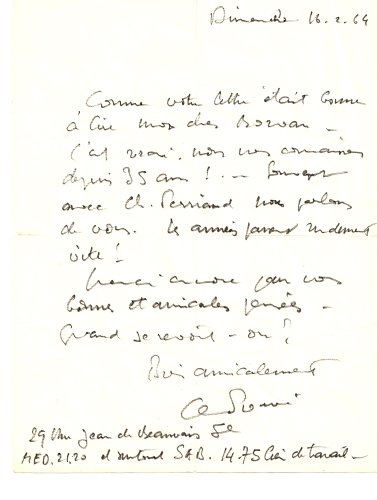 Dimanche 16.2.64
Comme votre lettre était bonne
à lire mon cher
c'est vrai, nous nous connaissons
depuis 35 ans ! - Souvent
avec Ch. Perriand nous parlons
de vous. Les années passent rudement
vite !
Merci encore pour vos
bonnes et amicales pensées -
Quand se revoit-on ?
Bien amicalement
29 rue Jean de Beauvais 5e
MED. 21.20 et surtout SAB. 14.75 lieu de travail -